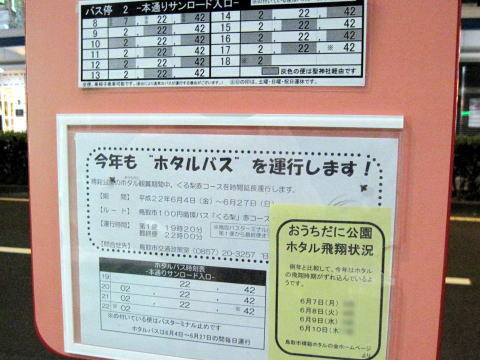 バス停 2 -本通りサンロード入口-
8 7 22 42
9 2 22 42
10 2 22 42
11 2 22 42
12 2 22 42
13 2 22 42
14 2 22 42
15 2 22 42
16 2 22 42
17 2 22 ※ 42
18 ※ 2
灰色の便は聖神社経由です
今年も “ホタルバス” を運行します！
ホタル観賞期間中、くる梨赤コースを時間延長運行します。
【期 間】 平成22年6月4日（金）～6月27日（日）
【ルート】 鳥取市100円循環バス「くる梨」赤コース
【運行時間】 第1便 19時20分
最終便 22時00分
【問合せ先】 鳥取市交通政策室（0857）20-3257
ホタルバス時刻表
-本通りサンロード入口-
19 22 , 42
20 02 , 22 , 42
21 02 , 22 , 42
22 ※02
※の付いている便はバスターミナル止めです
ホタルバスは6月4日～6月27日の間毎日運行
おうちだに公園
ホタル飛翔状況
例年と比較して、今年はホタル
の飛翔時期がずれ込んでいるよ
うです。
6月7日（月）
6月8日（火）
6月9日（水）
6月10日（木）
鳥取市樗谿ホタルの会ホームページ
より